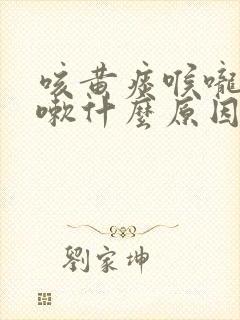 咳黄痰喉嚨
嗽什麼原因
劉家坤